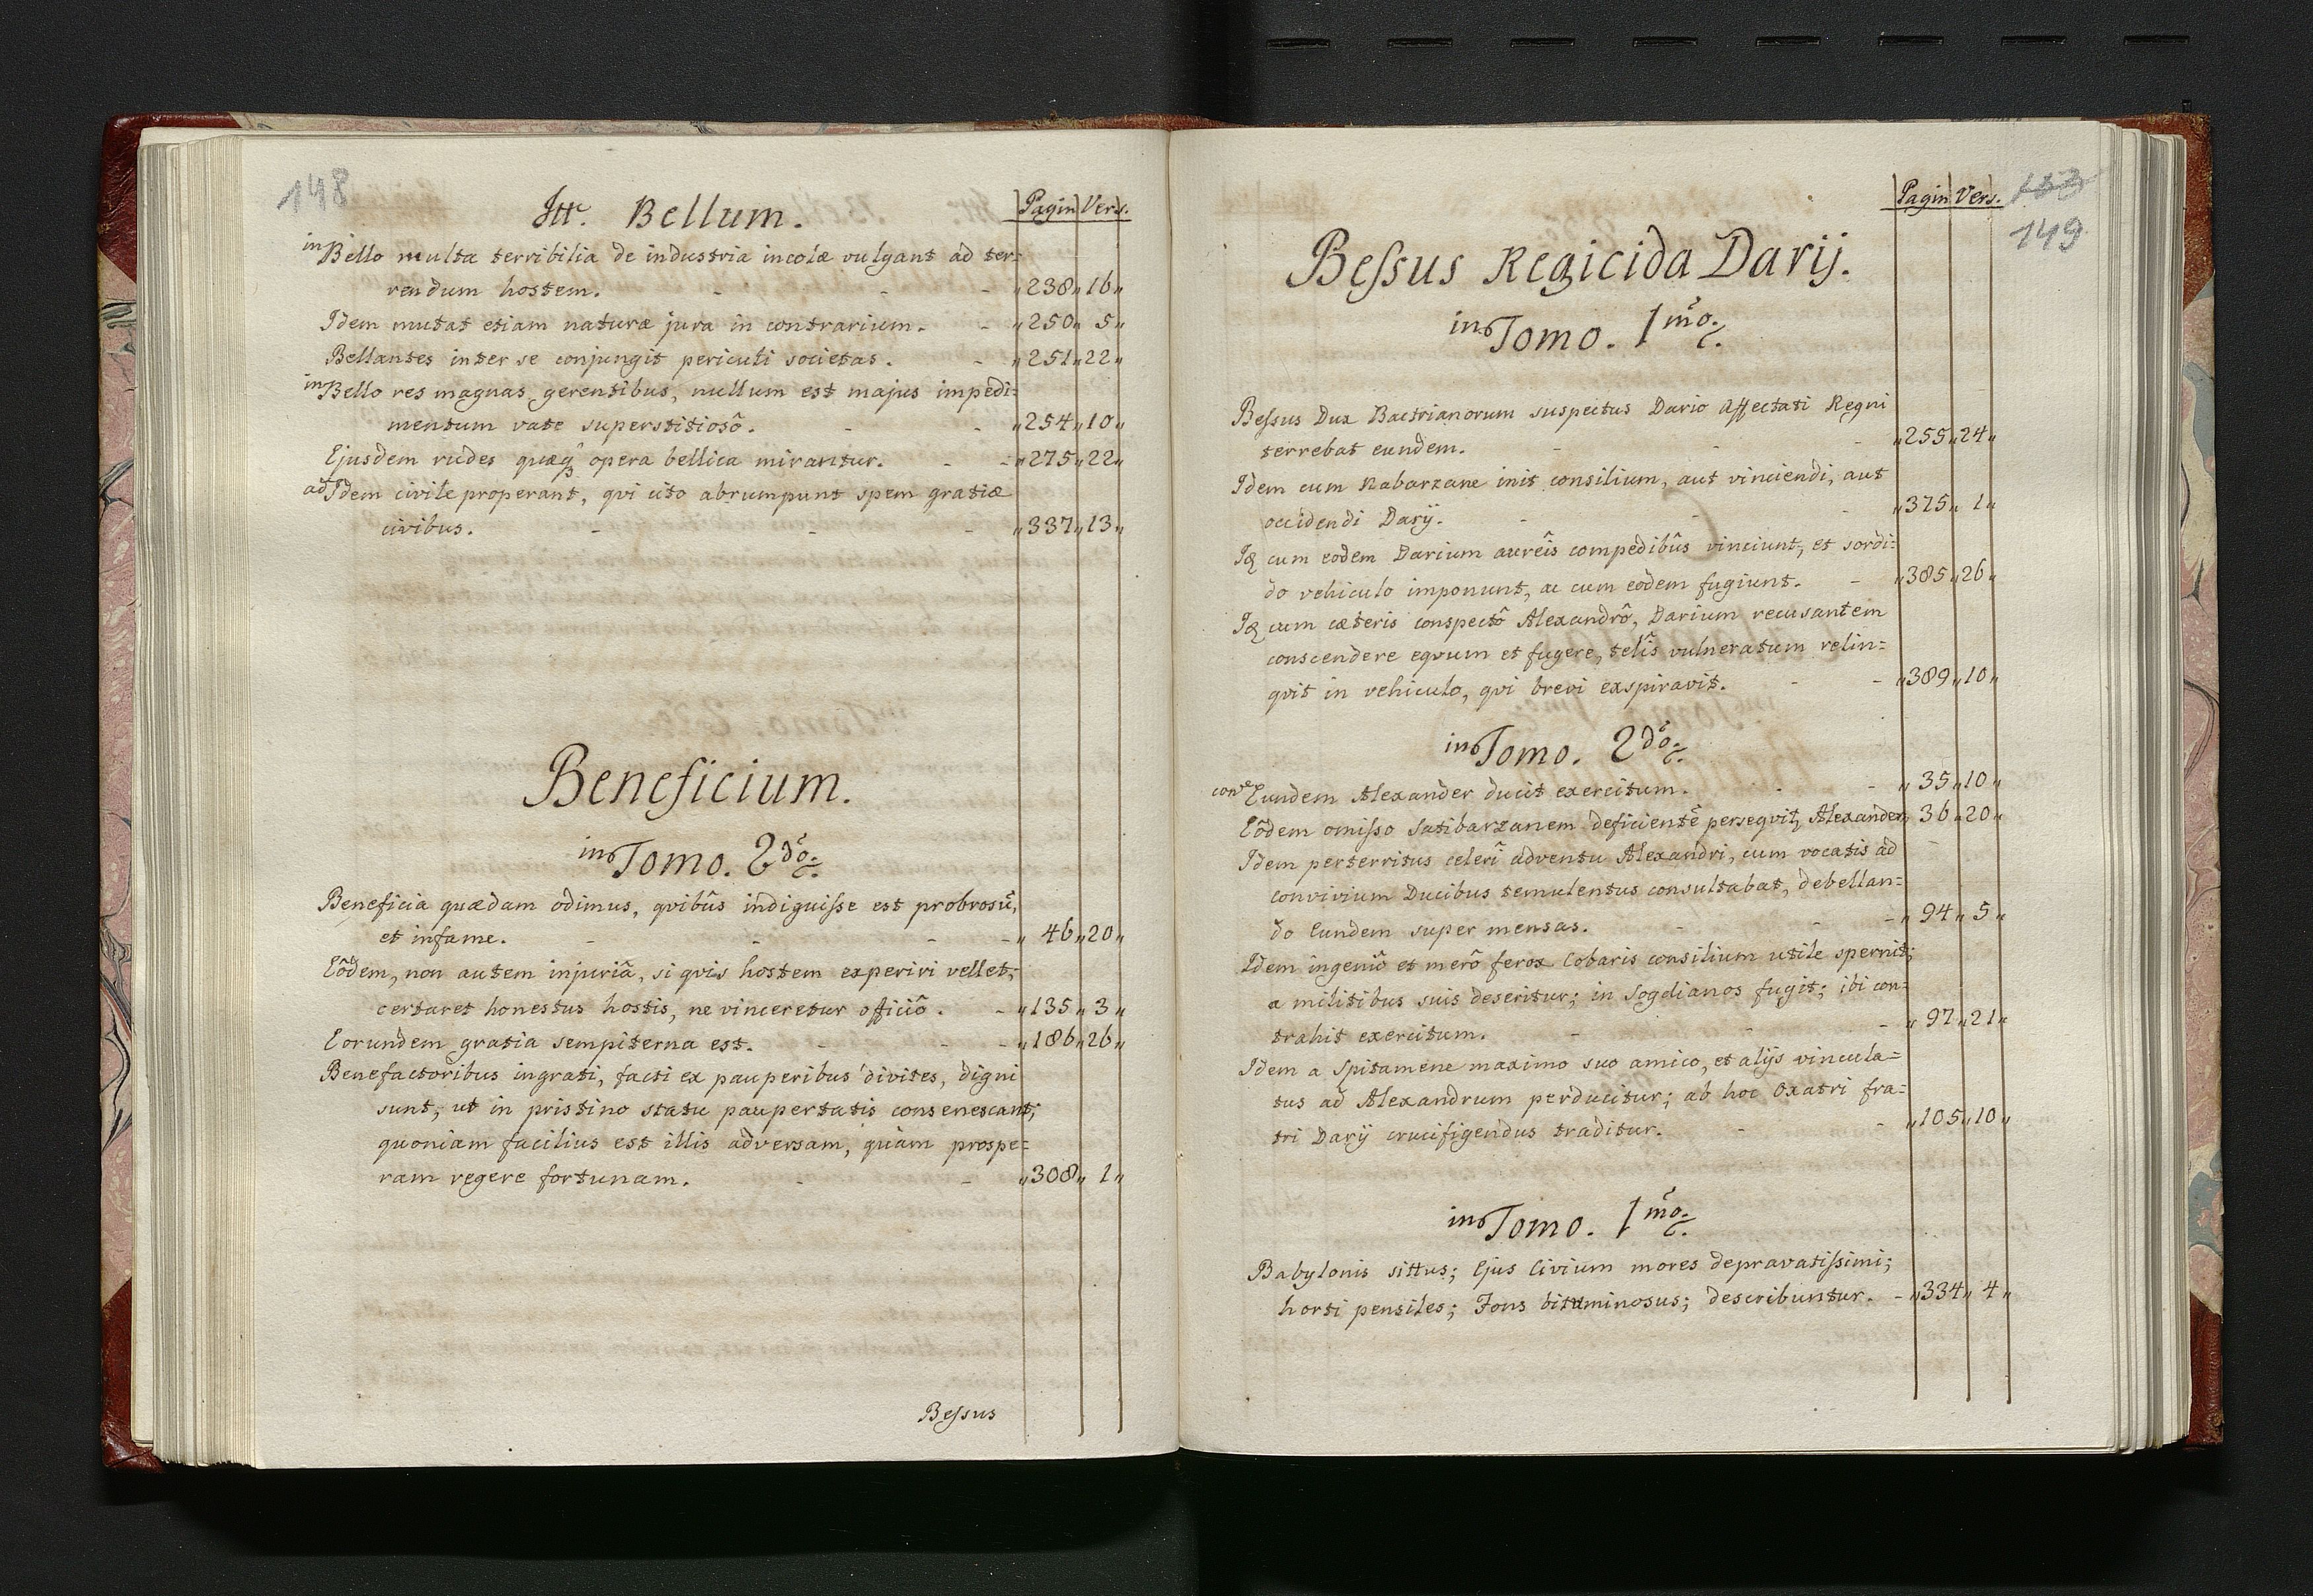 148
Itt. Bellum.
Pagin Vers.
in Bello multa terribilia de industria incolæ vulgant ad ter=
rendum hostem. - - - „238„16„
Idem mutat etiam naturæ jura in contrarium. - „250„ 5„
Bellantes inter se conjungit periculi societas. - „251„22„
in Bello res magnas gerentibus, nullum est majus impedi=
mentum vate superstitiosô. - - „254„10„
Ejusdem rudes quæq₃ opera bellica mirantur. - - „275„22„
ad Idem civile properant, qvi cito abrumpunt spem gratiæ
civibus. - - - „337„13„
Beneficium.
in Tomo. 2dô.
Beneficia quædam odimus, qvibûs indiguiſse est probrosũ,
et infame. - - - „ 46„20„
Eôdem, non autem injuriâ, si qvis hostem experiri vellet,
certaret honestus hostis, ne vinceretur officiô. - „135„ 3„
Eorundem gratia sempiterna est. - - - „186„26„
Benefactoribus ingrati, facti ex pauperibus divites, digni
sunt, ut in pristino statu paupertatis consenescant;
quoniam facilius est illis adversam, quàm prospe=
ram regere fortunam. - - „308„ 1„
Beſsus
Pagin Vers. 153
149
Beſsus Regicida Darij.
in Tomo. 1mô.
Beſsus Dux Bactrianorum suspectus Dario affectati Regni
terrebat eundem. - - - „255„24„
Idem cum Nabarzane init consilium, aut vinciendi, aut
occidendi Darij. - - - „375„ 1„
cum eodem Darium aureîs compedibûs vinciunt, et sordi=
do vehiculo imponunt, ac cum eodem fugiunt. - „385„26„
cum cæteris conspectô Alexandrô, Darium recusantem
conscendere eqvum et fugere, telîs vulneratum relin=
qvit in vehiculo, qvi brevi exspiravit. - - „389„10„
in Tomo. 2dô.
Eundem Alexander ducit exercitum. - - „ 35„10„
Eôdem omiſso Satibarzanem deficientẽ perseqvit, Alexander „ 36„20„
Idem perterritus celeri adventu Alexandri, cum vocatis ad
convivium Ducibus temulentus consultabat, debellan=
do Eundem super mensas. - - - „ 94„ 5„
Idem ingeniô et merô ferox Cobaris consilium utile spernit;
a militibus suis deseritur; in Sogdianos fugit; ibi con=
trahit exercitum. - - - „ 97„21„
Idem a Spitamene maximo suo amico, et alijs vincula=
tus ad Alexandrum perducitur; ab hoc Oxatri fra=
tri Darij crucifigendus traditur. - - „105„10„
in Tomo. 1mô.
Babylonis sittus; Ejus Civium mores depravatiſsimi;
horti pensiles; Fons bituminosus; describuntur. - „334„ 4„